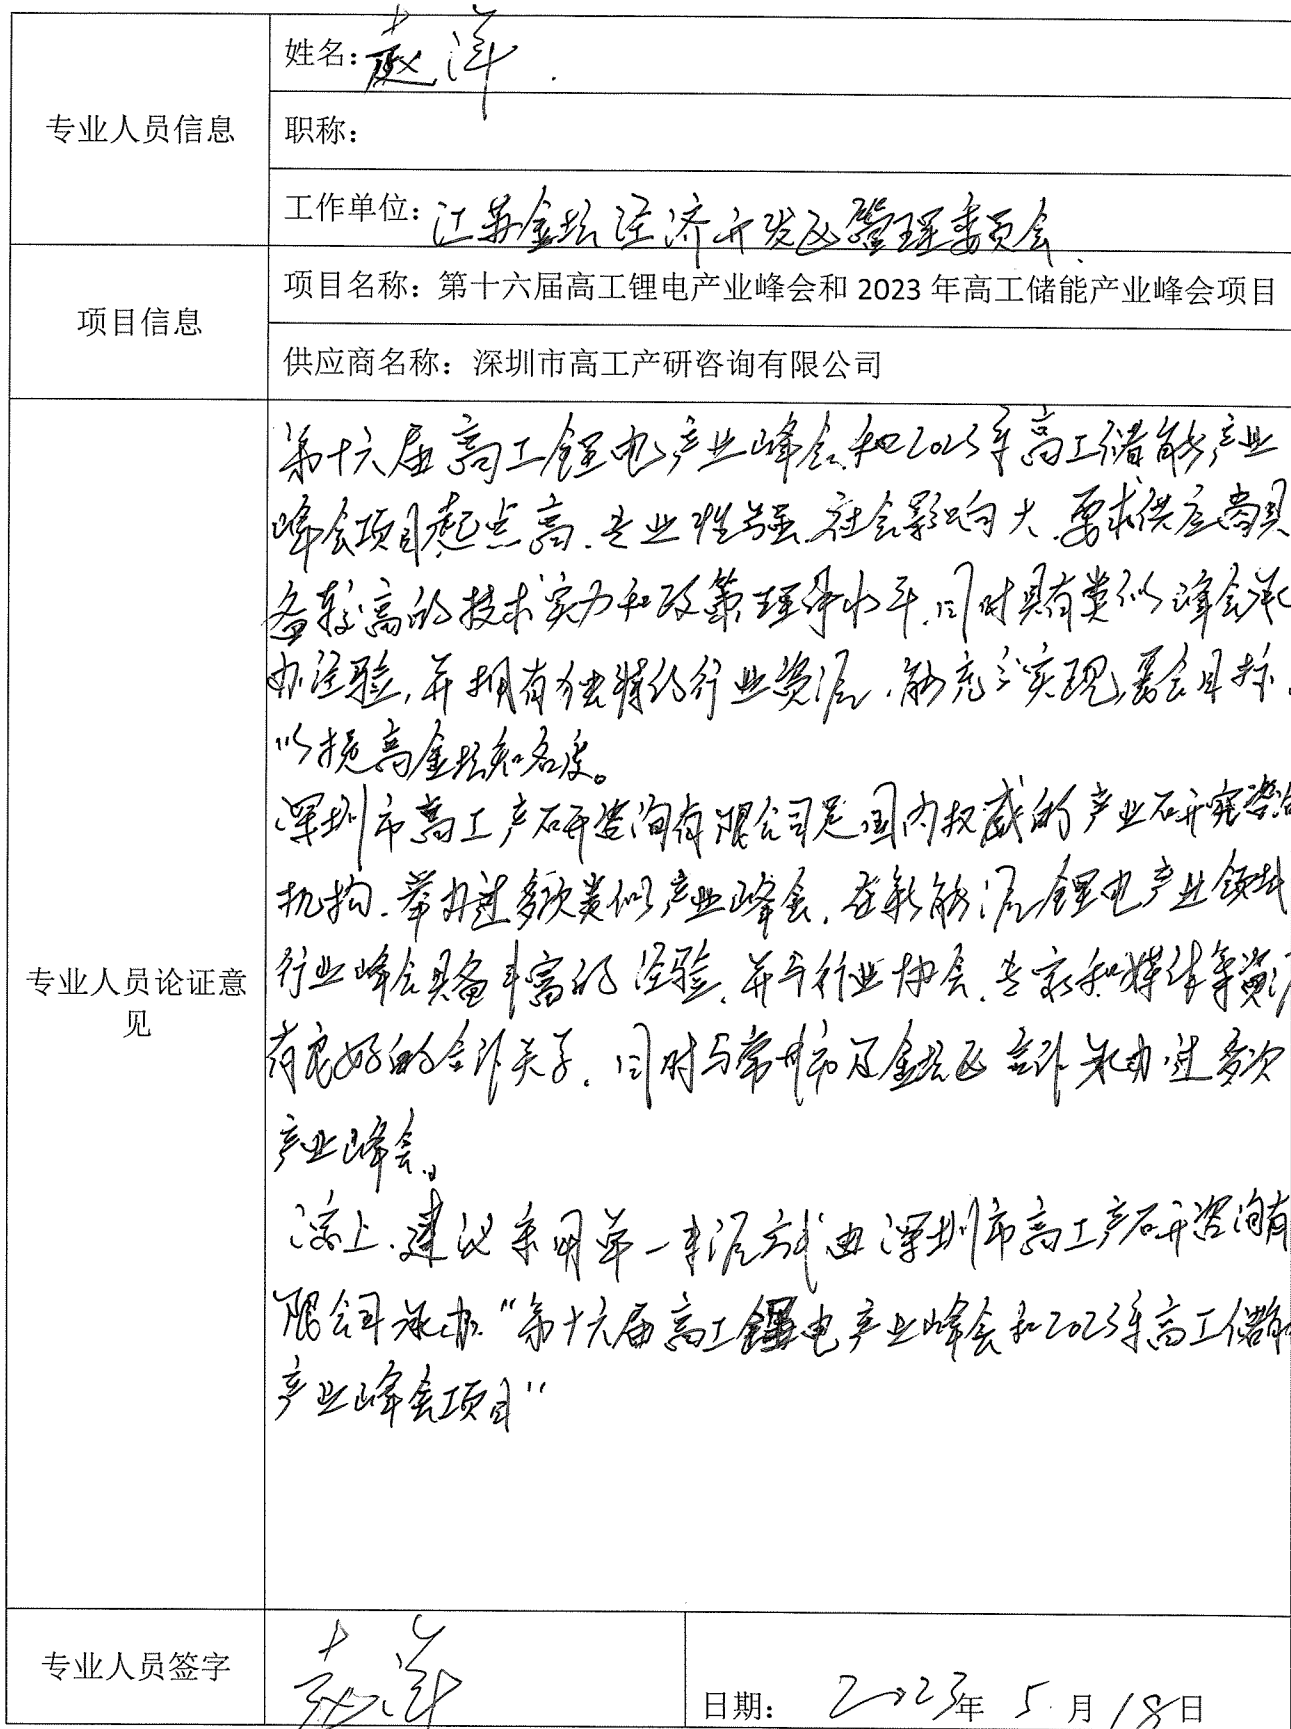 专业人员信息
姓名：赵洋
职称：
工作单位：江苏金坛经济开发区管理委员会
项目信息
项目名称：第十六届高工锂电产业峰会和 2023 年高工储能产业峰会项目
供应商名称：深圳市高工产研咨询有限公司
专业人员论证意
见
第十六届高工锂电产业峰会和2023年高工储能产业
峰会项目起点高、专业性强、社会影响大，要求供应商具
备较高的技术实力和政策理解水平，同时具有类似峰会承
办经验，并拥有独特的行业资源，能充分实现办会目标，
以提高金坛知名度。
深圳市高工产研咨询有限公司是国内权威的产业研究咨询
机构，举办过多次类似产业峰会，在新能源锂电产业领域
行业峰会具备丰富的经验，并与行业协会、专家和媒体等资源
有良好的合作关系，同时与常州市及金坛区合作承办过多次
产业峰会。
综上，建议采用单一来源方式由深圳市高工产研咨询有
限公司承办"第十六届高工锂电产业峰会和2023年高工储能
产业峰会项目"
专业人员签字
赵洋
日期： 2023年 5 月 18日